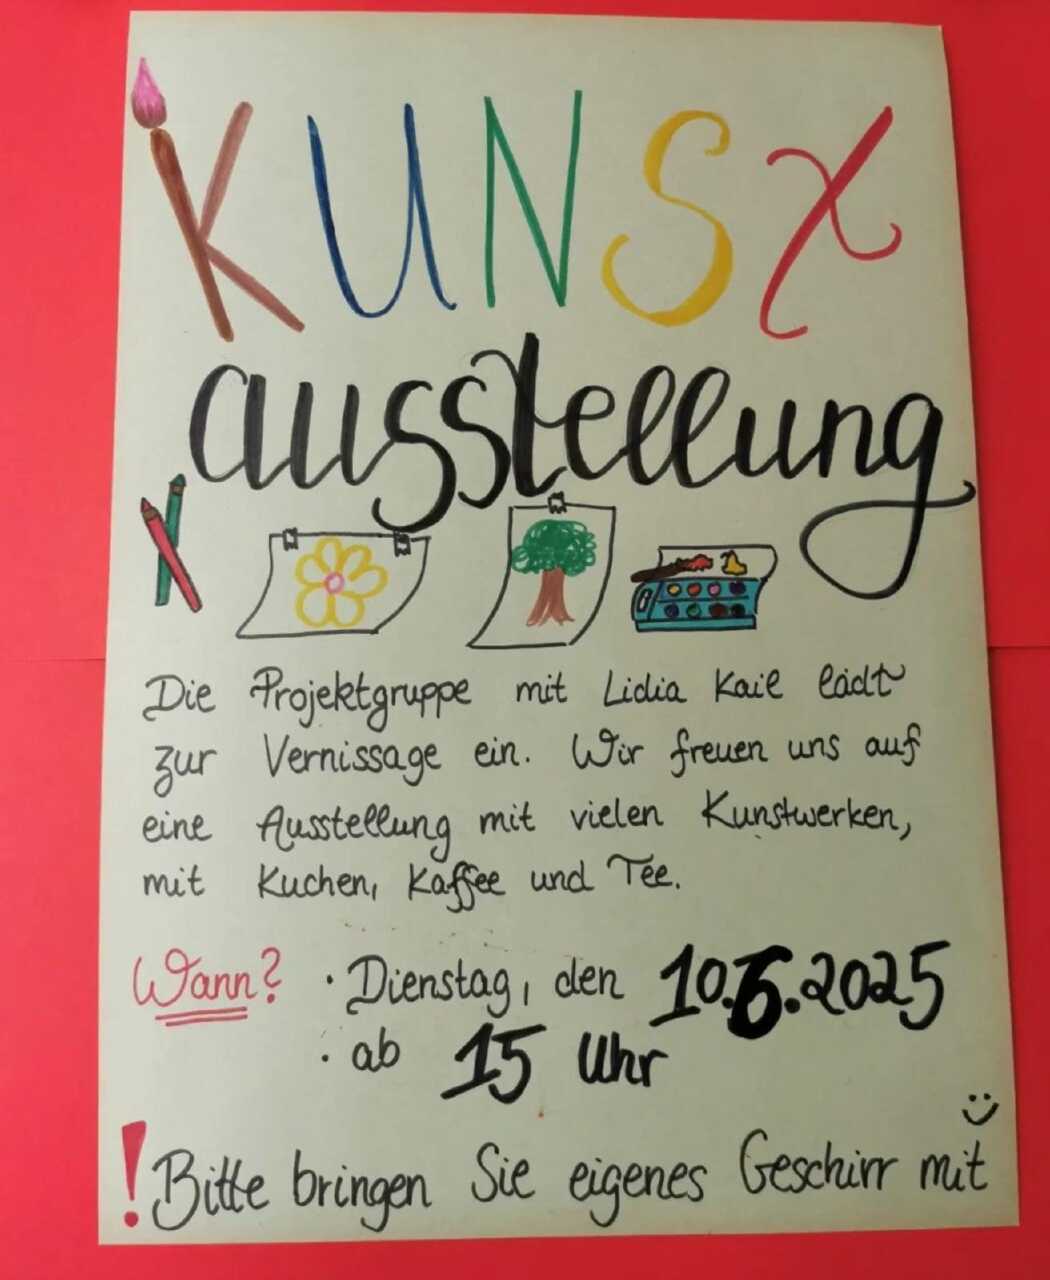 KUNST
ausstellung
Die Projektgruppe mit Lidia Kail lädt
zur Vernissage ein. Wir freuen uns auf
eine Ausstellung mit vielen Kunstwerken,
mit Kuchen, Kaffee und Tee.
Wann? · Dienstag, den 10.6.2025
· ab 15 Uhr
! Bitte bringen Sie eigenes Geschirr mit